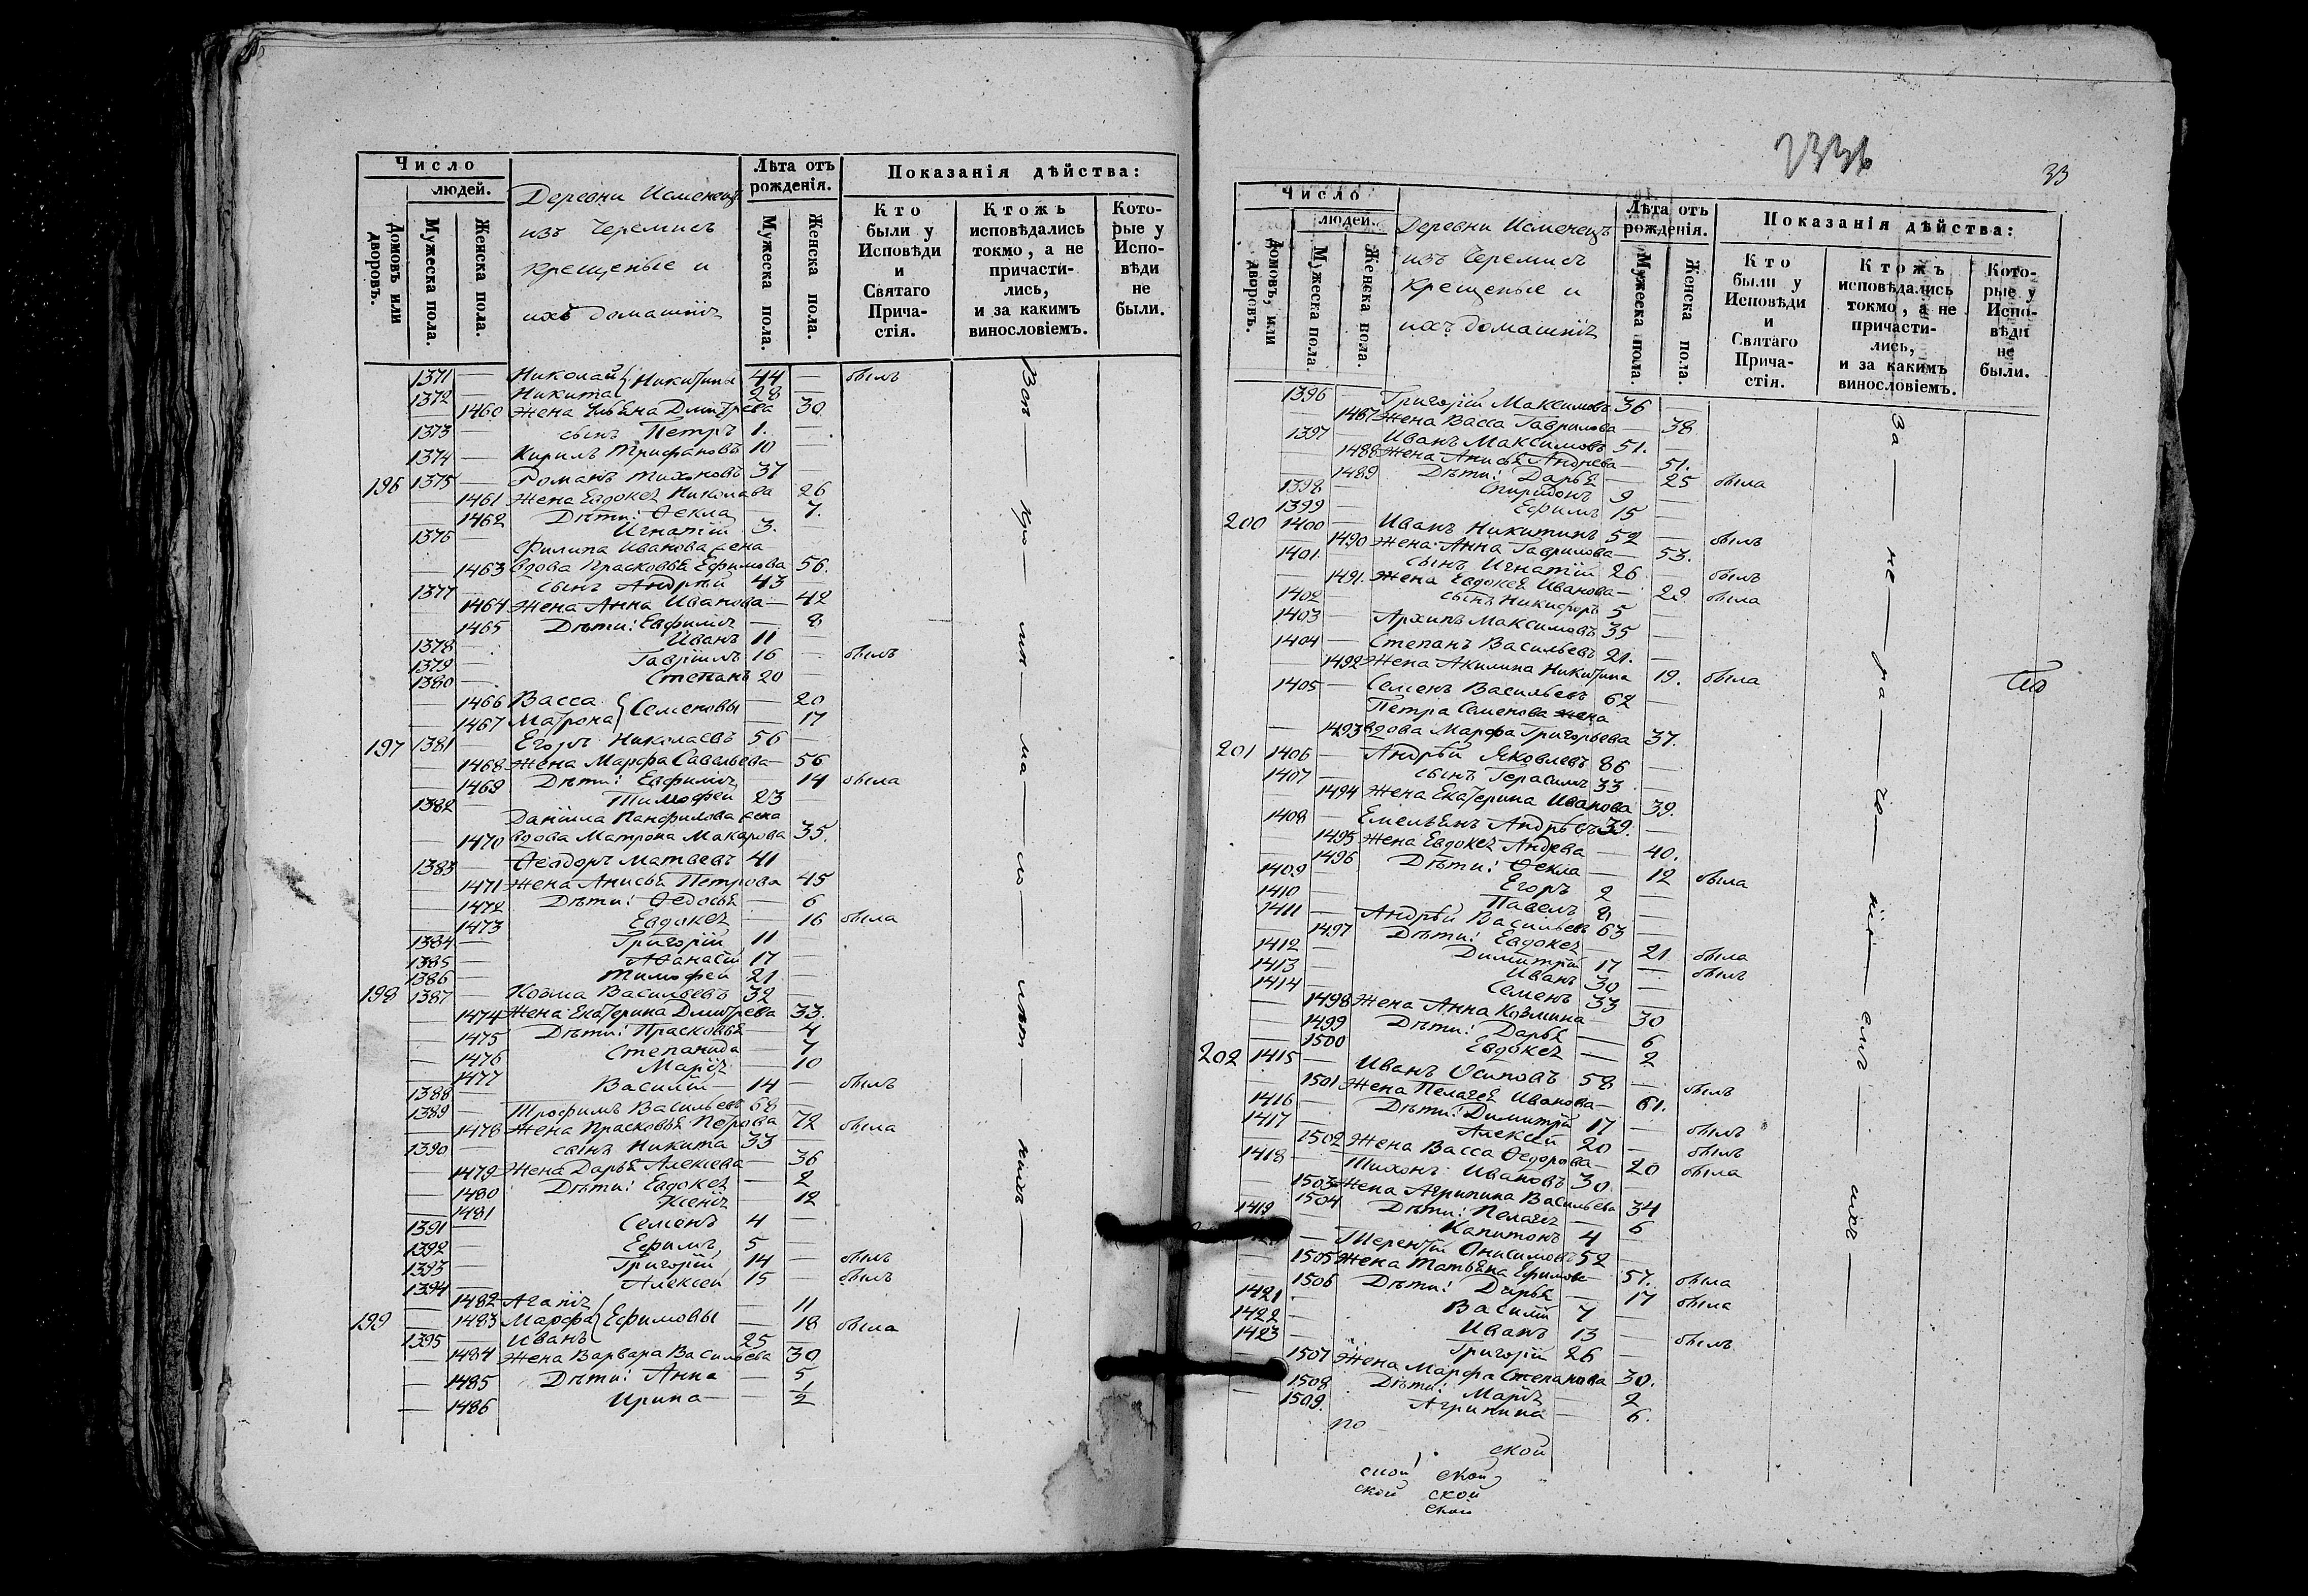 Число
людей.
Домовъ или дворовъ.
Мужеска пола.
Женска пола.
Деревни Исменецъ
изъ Черемисъ
крещеные и
ихъ домашніе
Лѣта отъ рожденія.
Мужеска пола.
Женска пола.
Показанія дѣйства:
Кто были у Исповѣди и Святаго Прича-стія.
Ктожъ исповѣдались токмо, а не причасти-лись, и за какимъ винословіемъ.
Кото-рые у Испо-вѣди не были.
1371 — Николай } Никитины 44 — былъ
1372 — Никита 28 —
— 1460 Жена Ульяна Дмитрева 30
1373 — сынъ Петръ 1. —
1374 — Кирилъ Трифановъ 10
196 1375 — Романъ Тихоновъ 37 —
— 1461 Жена Евдокея Николаева 26
— 1462 Дѣти: Ѳекла — 7.
1376 — Игнатій 3.
Филипа Иванова жена
— 1463 вдова Прасковья Ефимова 56.
1377 — сынъ Андрѣй 43 —
1464 Жена Анна Иванова — 42
— 1465 Дѣти: Евфимія — 8
1378 — Иванъ 11 —
1379 — Гавріилъ 16 — былъ
1380 — Степанъ 20 —
— 1466 Васса } Семеновы — 20
— 1467 Матрона — 17
197 1381 — Егоръ Николаевъ 56 —
— 1468 Жена Марфа Савельева — 56
— 1469 Дѣти: Евфимія — 14 была
1382 — Тимофей 23 —
Даніила Панфилова жена
— 1470 вдова Матрона Макарова 35.
1383 — Ѳеодоръ Матвеевъ 41
— 1471 Жена Анисья Петрова 45
— 1472 Дѣти: Ѳедосья — 6
— 1473 Евдокея — 16 была
1384 — Григорій 11 —
1385 — Аѳанасій 17 —
1386 — Тимофей 21 —
198 1387 — Козма Васильевъ 32 —
— 1474 Жена Екатерина Дмитрева 33.
— 1475 Дѣти: Прасковья — 4
— 1476 Степанида — 7
— 1477 Марія — 10
1388 — Василій — 14 — былъ
1389 — Трофимъ Васильевъ 68 —
— 1478 Жена Прасковья Петрова 72 была
1390 — сынъ Никита 33 —
— 1479 Жена Дарья Алексева — 36
— 1480 Дѣти: Евдокея — 2
— 1481 Ксенія — 12
1391 — Семенъ 4 —
1392 — Ефимъ 5
1393 — Григорій 14 — былъ
1394 — Алексей 15 — былъ
— 1482 Агапія } Ефимовы — 11
199 — 1483 Марфа — 18 была
1395 — Иванъ 25 —
— 1484 Жена Варвара Васильева 30
— 1485 Дѣти: Анна — 5
— 1486 Ирина — — 1/2
33
Число
людей.
Домовъ, или дворовъ.
Мужеска пола
Женска пола.
Деревни Исменецъ
изъ Черемисъ
крещеные и
ихъ домашніе
Лѣта отъ рожденія.
Мужеска пола.
Женска пола.
Показанія дѣйства:
Кто были у Исповѣди и Святаго Прича-стія.
Ктожъ исповѣдались токмо, а не причасти-лись, и за какимъ винословіемъ.
Кото-рые у Испо-вѣди не были.
1396 — Григорій Максимовъ 36 —
1487 Жена Васса Гаврилова — 38
1397 — Иванъ Максимовъ 51. —
1488 Жена Анисья Андрева — 51.
1489 Дѣти: Дарья — 25 была
1398 — Спиридонъ 9 —
1399 — Ефимъ 15 —
200 1400 — Иванъ Никитинъ 52 — былъ
— 1490 Жена Анна Гаврилова — 53.
1401. сынъ Игнатій 26 — былъ
— 1491. Жена Евдокея Иванова — 29 была
1402 — сынъ Никифоръ 5 —
1403 — Архипъ Максимовъ 35 —
1404 — Степанъ Васильевъ 21. —
— 1492 Жена Акилина Никитина 19. была
1405 — Семенъ Васильевъ 62 —
Петра Семенова жена
— 1493 вдова Марфа Григорьева 37.
201 1406 — Андрѣй Яковлевъ 86 —
1407 — сынъ Герасимъ 33
— 1494 Жена Екатерина Иванова 39.
1408 — Емельянъ Андрѣевъ 39. —
— 1495 Жена Евдокея Андрева — 40.
— 1496 Дѣти: Ѳекла — 12 была
1409 — Егоръ 2 —
1410 — Павелъ 8 —
1411 — Андрѣй Васильевъ 63 —
— 1497 Дѣти: Евдокея 21 была
1412 — Димитрій 17 — былъ
1413 — Иванъ 30 —
1414 — Семенъ 33 —
— 1498 Жена Анна Козмина — 30
— 1499 Дѣти: Дарья — 6
— 1500 Евдокея — 2
202 1415 — Иванъ Осиповъ 58 — былъ
— 1501 Жена Пелагея Иванова — 61.
1416 — Дѣти: Димитрій 17 — былъ
1417 — Алексей 20 — былъ
— 1502 Жена Васса Ѳедорова — 20 была
1418 — Тихонъ Ивановъ 30
— 1503 Жена Агрипина Васильева 34
— 1504 Дѣти: Пелагея — 6
1419 Капитонъ 4 —
— Терентій Онисимовъ 52 —
1505 Жена Татьяна Ефимова 57. была
— 1506 Дѣти: Дарья — 17 была
1421 Василій 7 —
1422 — Иванъ 13 — былъ
1423 — Григорій 26 —
— 1507 Жена Марфа Степанова 30.
— 1508 Дѣти: Марія — 2
— 1509. Агрипина — 6.
по
ской
ской ской
ской ской
ской